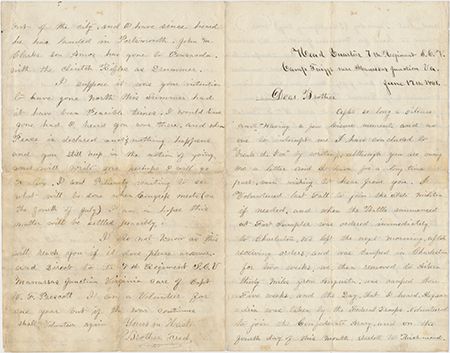 Head Quarter 7th Regiment S.C.V.
Camp near Manassas Junction Va.
June 17th 1861
Dear Brother
After so long a silence
and Having a few leisure moments and no
one to interrupt me I have concluded to
by writing, although you owe
me a letter and I have for a long time
past been wishing to hear from you. I
Volunteered last Fall to join the state militia
if needed, and when the Battle commenced
at Fort Sumpter was ordered immediately
to Charleston, we left the next morning after
receiving orders, and was camped in Charleston
for two weeks, we then removed to Aiken
thirty miles from Augusta, was camped there
Five weeks, and the Day that I heard Alexan
dria was taken by the Federal Troops Volunteered
to join the Confederate Army, and on the
fourth day of this Month started to Richmond.
out of the city, and I have since heard
he has landed in Portsworth. John M.
Clarke has gone to Pensacola
with the Rifles as Drummer.
I suppose it was your intention
to have gone North this Summer had
it have been Peacible times. I would have
gone had I heard you was there, and when
Peace is declared and nothing happens
and you still keep in the notion of going
and will write me perhaps I will go
I am Patiently waiting to see
what will be done when Congress meets (on
the fourth of July) I am in hopes this
matter will be settled peasably.
I do not know as this
will reach you if it does please answer
and direct to the 7th Regiment S.C.V
Manassas Junction Virginia Care of Capt
W. F. Prescott. I am a Volunteer for
one year but if the war Continues
shall Volunteer again
Yours in Haste
Brother Fred.